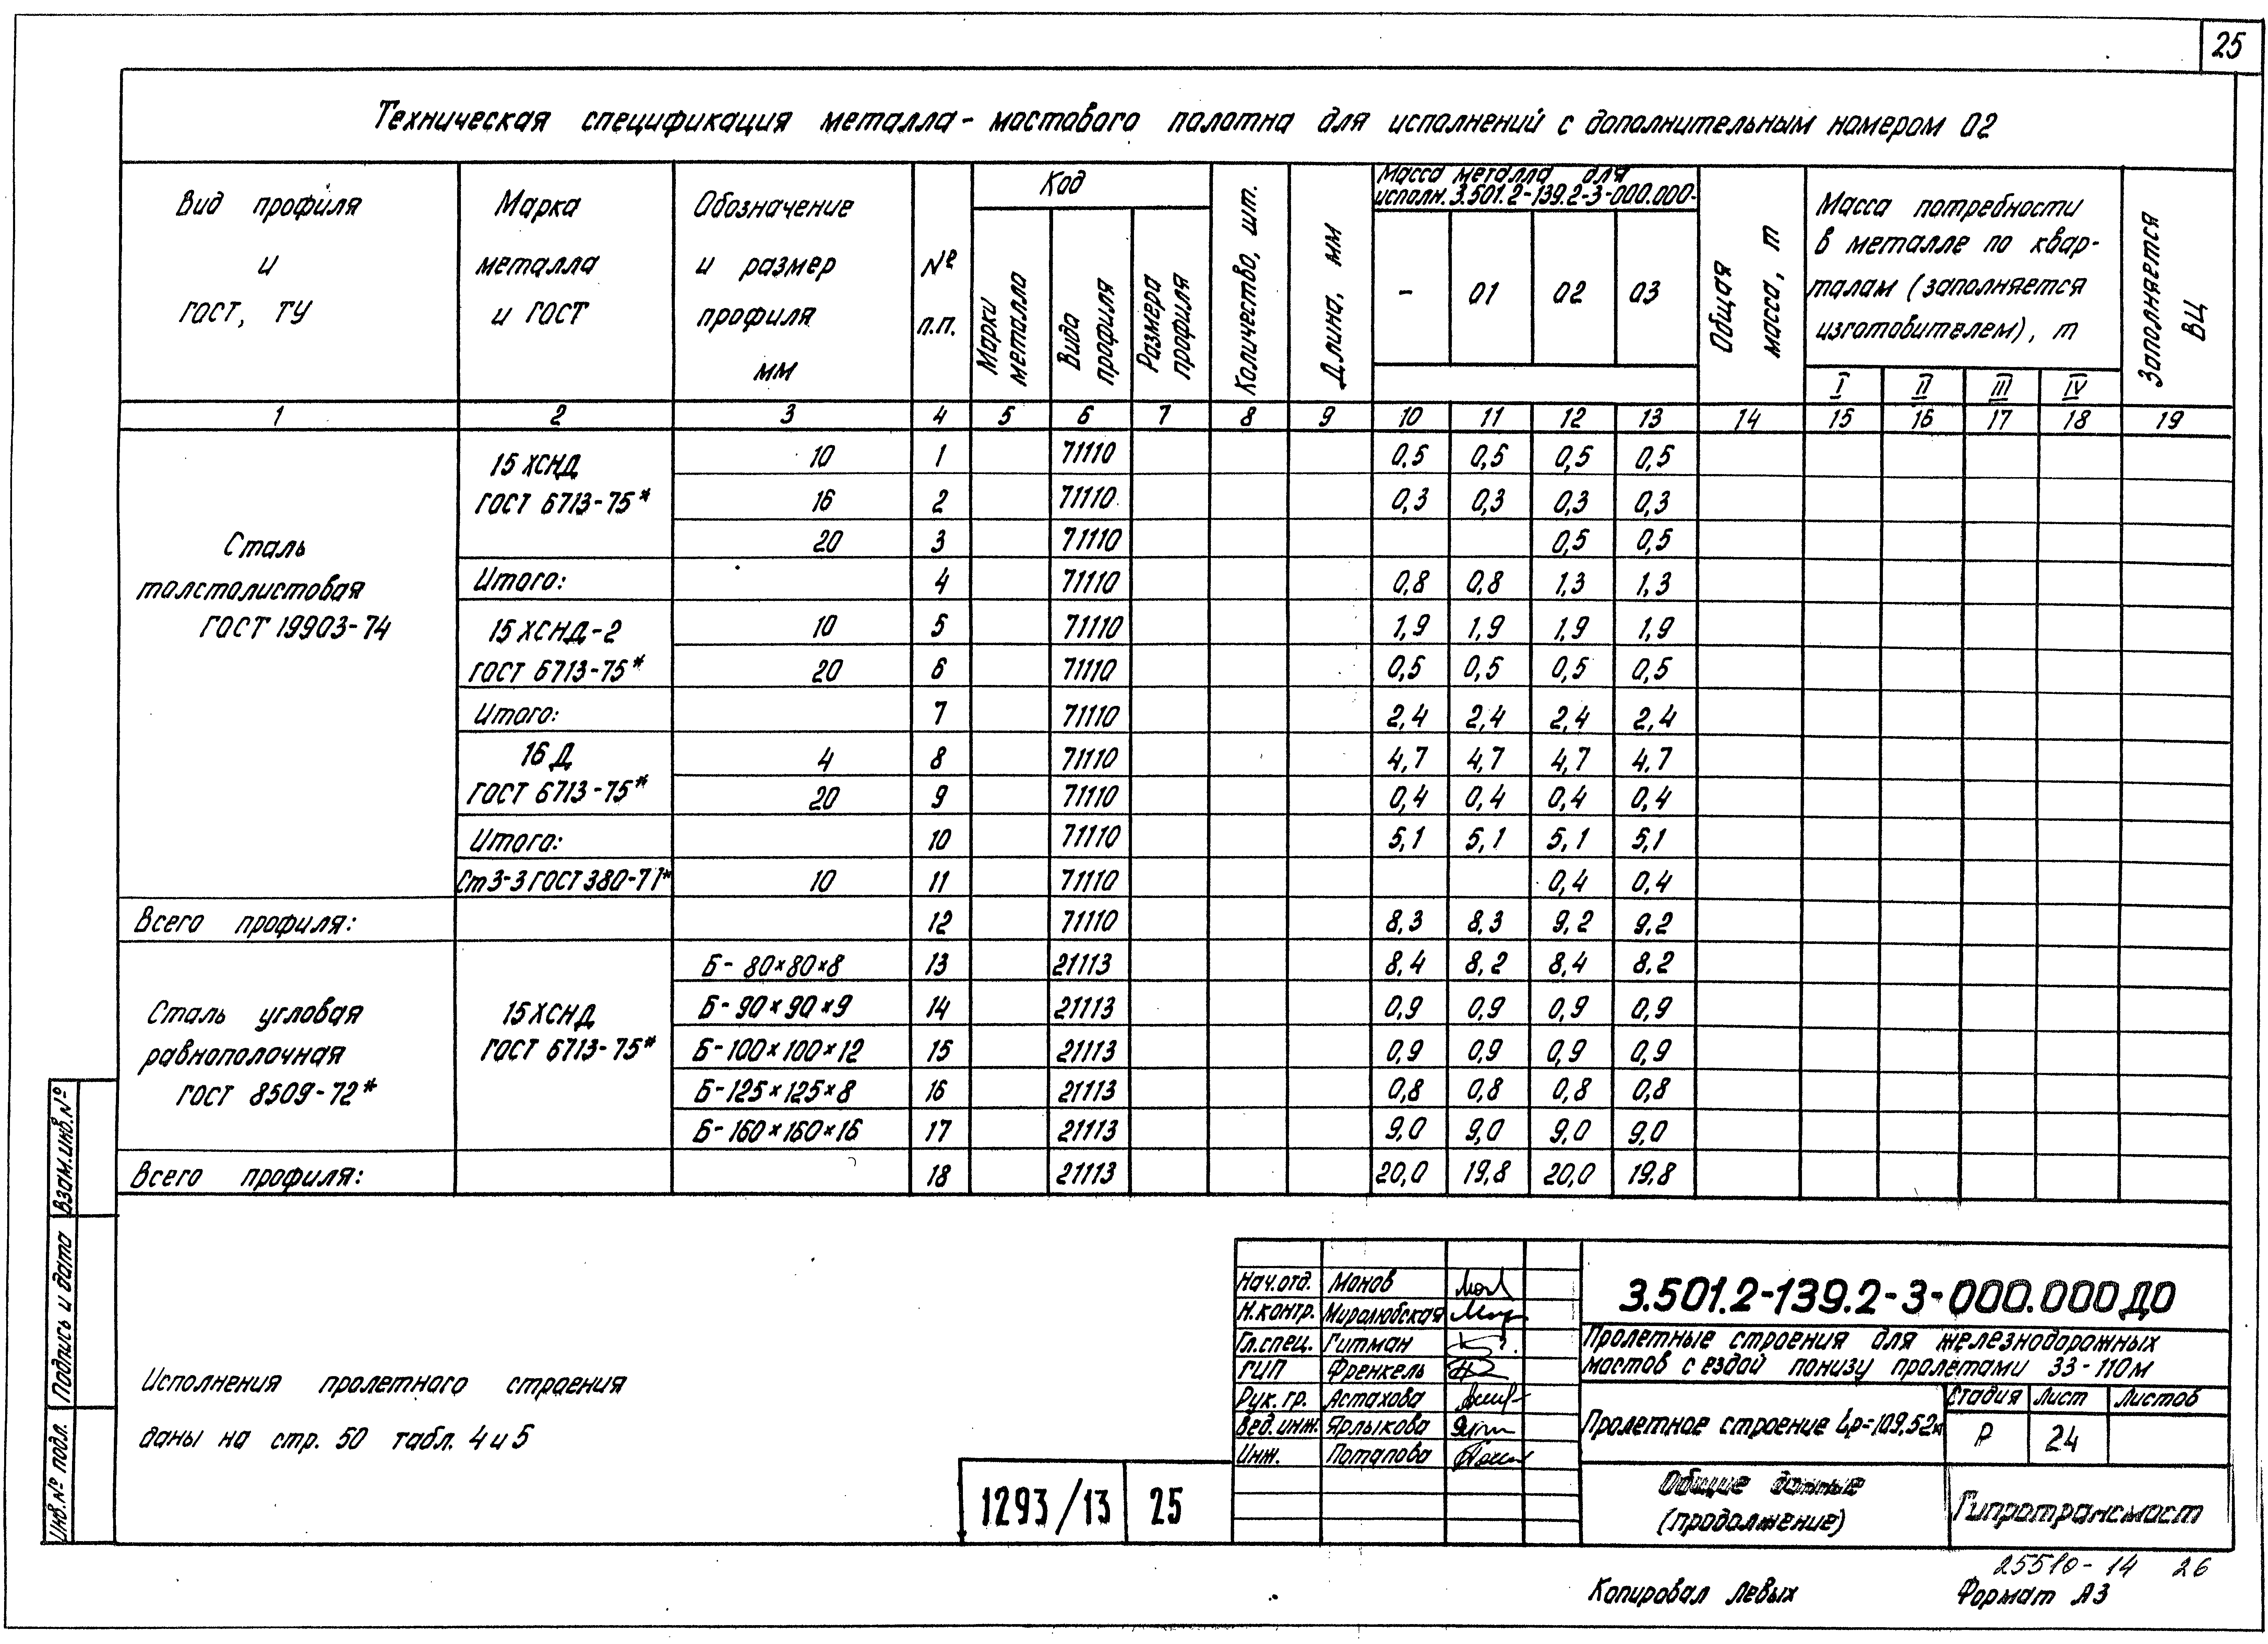 25
Техническая спецификация металла - мостового полотна для исполнений с дополнительным номером 02
Вид профиля и ГОСТ, ТУ
Марка металла и ГОСТ
Обозначение и размер профиля мм
№ п.п.
Код
Марки металла
Вида профиля
Размера профиля
Количество, шт.
Длина, мм
Масса металла для исполн. 3.501.2-139.2-3-000.000-
- 01 02 03
Общая масса, т
Масса потребности в металле по кварталам (заполняется изготовителем), т
I II III IV
Заполняется ВЦ
1 2 3 4 5 6 7 8 9 10 11 12 13 14 15 16 17 18 19
Сталь толстолистовая ГОСТ 19903-74
15 ХСНД ГОСТ 6713-75*
10 1 71110 0,5 0,5 0,5 0,5
16 2 71110 0,3 0,3 0,3 0,3
20 3 71110 0,5 0,5
Итого: 4 71110 0,8 0,8 1,3 1,3
15 ХСНД-2 ГОСТ 6713-75*
10 5 71110 1,9 1,9 1,9 1,9
20 6 71110 0,5 0,5 0,5 0,5
Итого: 7 71110 2,4 2,4 2,4 2,4
16 Д ГОСТ 6713-75*
4 8 71110 4,7 4,7 4,7 4,7
20 9 71110 0,4 0,4 0,4 0,4
Итого: 10 71110 5,1 5,1 5,1 5,1
Ст3-3 ГОСТ 380-71* 10 11 71110 0,4 0,4
Всего профиля: 12 71110 8,3 8,3 9,2 9,2
Сталь угловая равнополочная ГОСТ 8509-72*
15 ХСНД ГОСТ 6713-75*
Б-80×80×8 13 21113 8,4 8,2 8,4 8,2
Б-90×90×9 14 21113 0,9 0,9 0,9 0,9
Б-100×100×12 15 21113 0,9 0,9 0,9 0,9
Б-125×125×8 16 21113 0,8 0,8 0,8 0,8
Б-160×160×16 17 21113 9,0 9,0 9,0 9,0
Всего профиля: 18 21113 20,0 19,8 20,0 19,8
Исполнения пролетного строения
даны на стр. 50 табл. 4 и 5
Взам.инв.№
Подпись и дата
Инв.№ подл.
1293/13 25
Нач.отд. Монов
Н.контр. Миролюбская
Гл.спец. Гитман
ГИП Френкель
Рук. гр. Астахова
Вед.инж. Ярлыкова
Инж. Потапова
3.501.2-139.2-3-000.000 ДО
Пролетные строения для железнодорожных
мостов с ездой понизу пролетами 33-110м
Пролетное строение Lр=109,52м
Стадия Лист Листов
Р 24
Общие данные
(продолжение)
Гипротрансмост
25510-14 26
Копировал Левых Формат А3